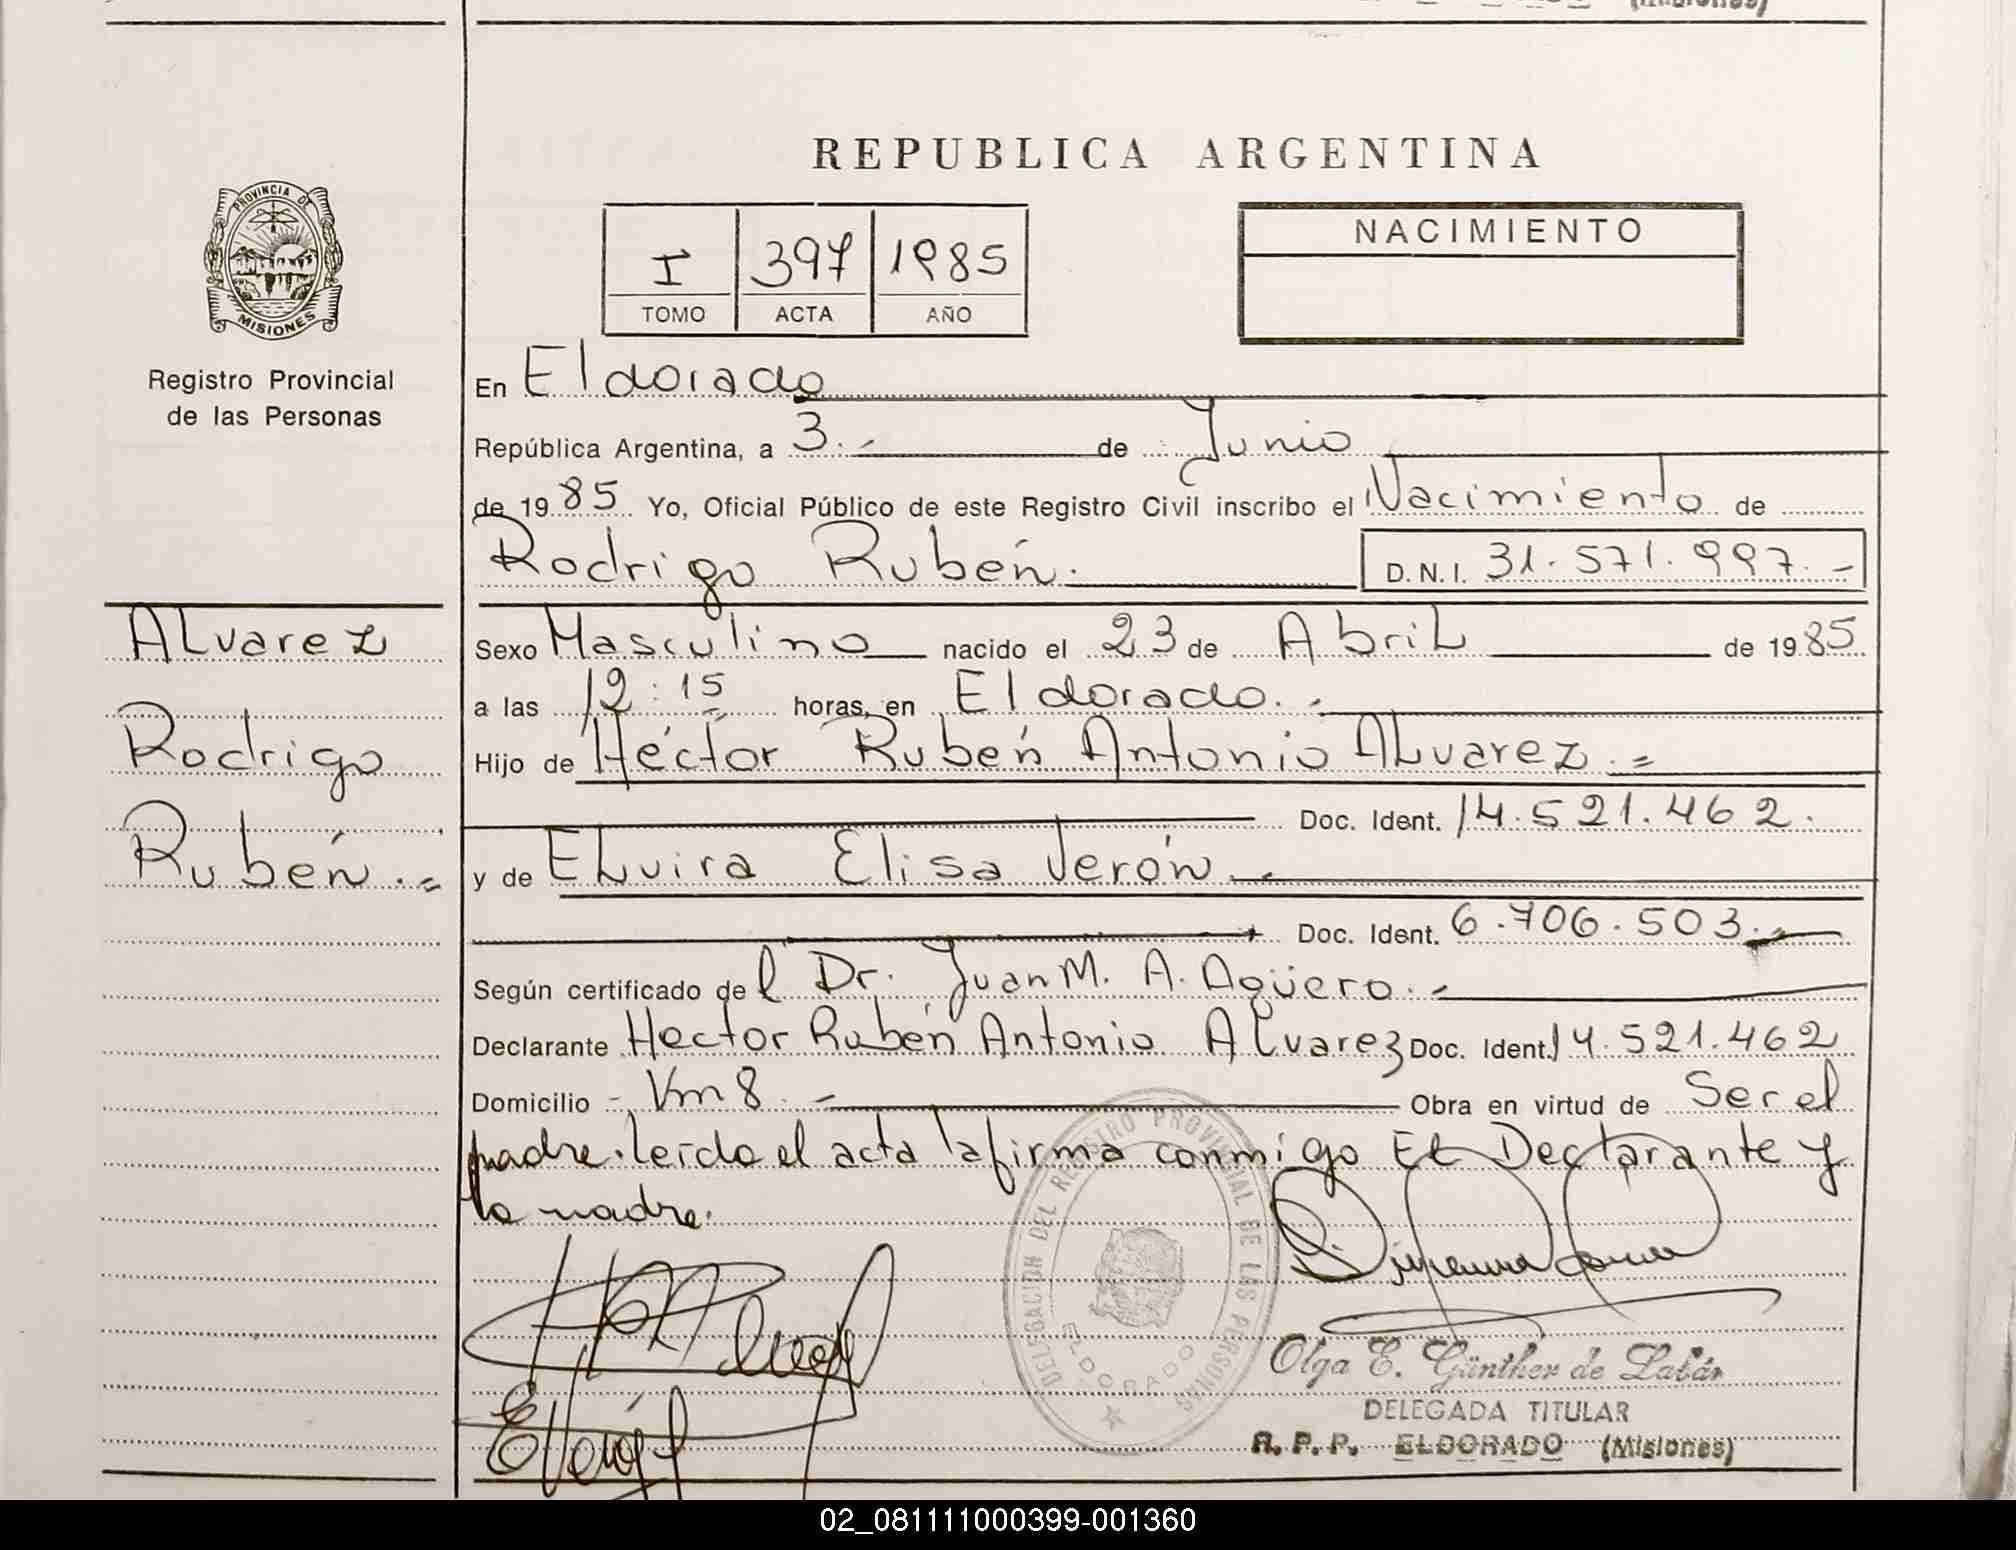 (Misiones)
REPUBLICA ARGENTINA
PROVINCIA DE
MISIONES
Registro Provincial
de las Personas
I 397 1985
TOMO ACTA AÑO
NACIMIENTO
En Eldorado
República Argentina, a 3.- de Junio
de 1985 Yo, Oficial Público de este Registro Civil inscribo el Nacimiento de
Rodrigo Rubén. D.N.I. 31.571.997.-
Alvarez
Rodrigo
Rubén.=
Sexo Masculino nacido el 23 de Abril de 1985
a las 12:15 horas, en Eldorado.-
Hijo de Héctor Rubén Antonio Alvarez.=
Doc. Ident. 14.521.462.
y de Elvira Elisa Verón.-
Doc. Ident. 6.706.503.-
Según certificado del Dr. Juan M. A. Agüero.-
Declarante Hector Rubén Antonio Alvarez Doc. Ident. 14.521.462
Domicilio - Km 8.- Obra en virtud de Ser el
padre. leída el acta la firma conmigo El Declarante y
la madre.
DELEGACION DEL REGISTRO PROVINCIAL DE LAS PERSONAS
ELDORADO
Olga E. Günther de Labár
DELEGADA TITULAR
R. P. P. ELDORADO (Misiones)
02_081111000399-001360